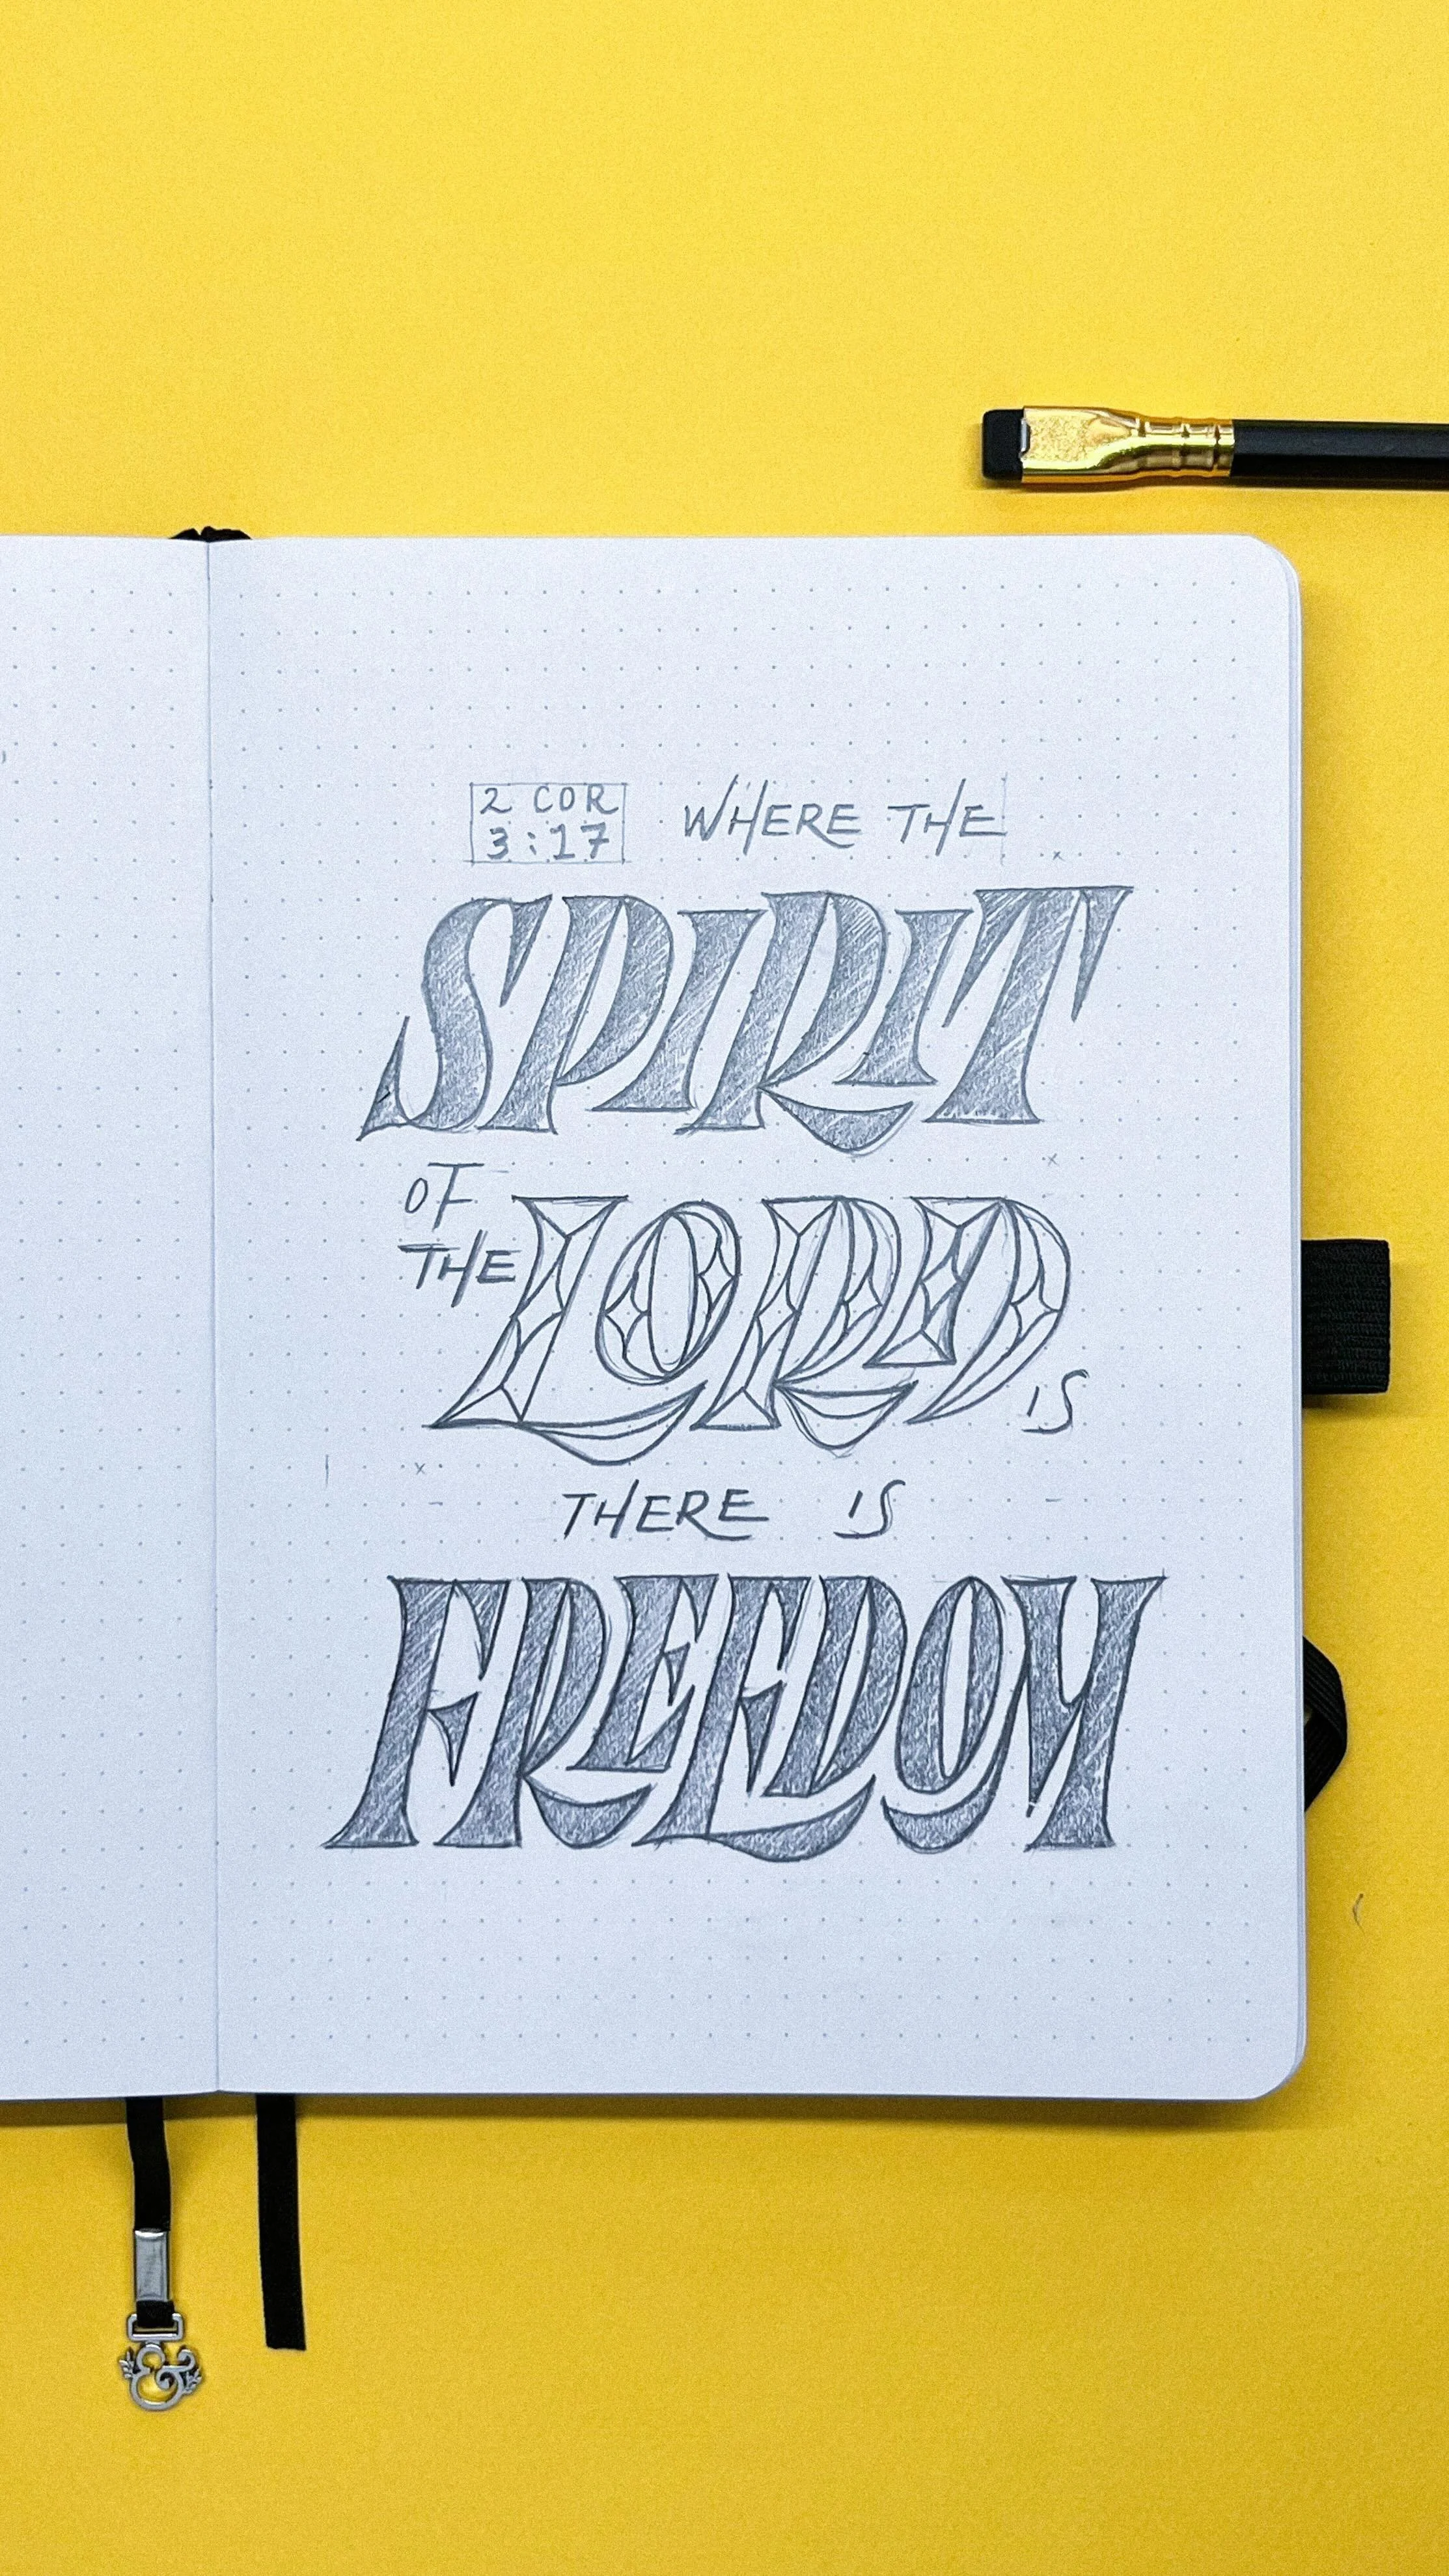 2 COR
3:17
WHERE THE
SPIRIT
OF
THE LORD IS
THERE IS
FREEDOM
&